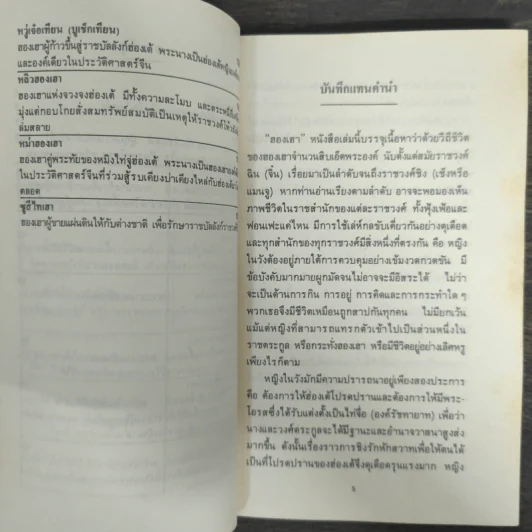 หวู่เจ๋อเทียน (บูเช็กเทียน)
ฮองเฮาผู้ก้าวขึ้นสู่ราชบัลลังก์ฮ่องเต้ พระนางเป็นฮ่องเต้หญิง
และองค์เดียวในประวัติศาสตร์จีน
หลิวฮองเฮา
ฮองเฮาแห่งจวงจงฮ่องเต้ มีทั้งความละโมบ และตระหนี่
มุ่งแต่กอบโกยสั่งสมทรัพย์สมบัติเป็นเหตุให้ราชวงศ์
ล่มสลาย
หม่าฮองเฮา
ฮองเฮาคู่พระทัยของหมิงไท่จู่ฮ่องเต้ พระนางเป็นฮองเฮา
ในประวัติศาสตร์จีนที่ร่วมสู้รบเคียงบ่าเคียงไหล่กับฮ่องเต้
ตลอด
ซูสีไทเฮา
ฮองเฮาผู้ขายแผ่นดินให้กับต่างชาติ เพื่อรักษาราชบัลลังก์
บันทึกแทนคำนำ
"ฮองเฮา" หนังสือเล่มนี้บรรจุเนื้อหาว่าด้วยวิถีชีวิต
ของฮองเฮาจำนวนสิบเอ็ดพระองค์ นับตั้งแต่สมัยราชวงศ์
ฉิน (จิ๋น) เรื่อยมาเป็นลำดับจนถึงราชวงศ์ชิง (เช็งหรือ
แมนจู) หากท่านอ่านเรียงตามลำดับ อาจจะพอมองเห็น
ภาพชีวิตในราชสำนักของแต่ละราชวงศ์ ทั้งฟุ้งเฟ้อและ
ฟอนเฟะแค่ไหน มีการใช้เล่ห์กลขับเคี่ยวกันอย่างดุเดือด
และทุกสำนักของทุกราชวงศ์มีสิ่งหนึ่งที่ตรงกัน คือ หญิง
ในวังต้องอยู่ภายใต้การควบคุมอย่างเข้มงวดกวดขัน มี
ข้อบังคับมากมายผูกมัดจนไม่อาจจะมีอิสระได้ ไม่ว่า
จะเป็นด้านการกิน การอยู่ การคิดและการกระทำใด ๆ
พวกเธอจึงมีชีวิตเหมือนถูกสาปกันทุกคน ไม่มียกเว้น
แม้แต่หญิงที่สามารถแทรกตัวเข้าไปเป็นส่วนหนึ่งใน
ราชตระกูล หรือกระทั่งฮองเฮา หรือมีชีวิตอยู่อย่างเลิศหรู
เพียงไรก็ตาม
หญิงในวังมักมีความปรารถนาอยู่เพียงสองประการ
คือ ต้องการให้ฮ่องเต้โปรดปรานและต้องการให้มีพระ-
โอรสซึ่งได้รับแต่งตั้งเป็นไท่จื่อ (องค์รัชทายาท) เพื่อว่า
นางและวงศ์ตระกูลจะได้มีฐานะและอำนาจวาสนาสูงส่ง
มากขึ้น ดังนั้นเรื่องราวการชิงรักหักสวาทเพื่อให้ตนได้
เป็นที่โปรดปรานของฮ่องเต้จึงดุเดือดรุนแรงมาก หญิง